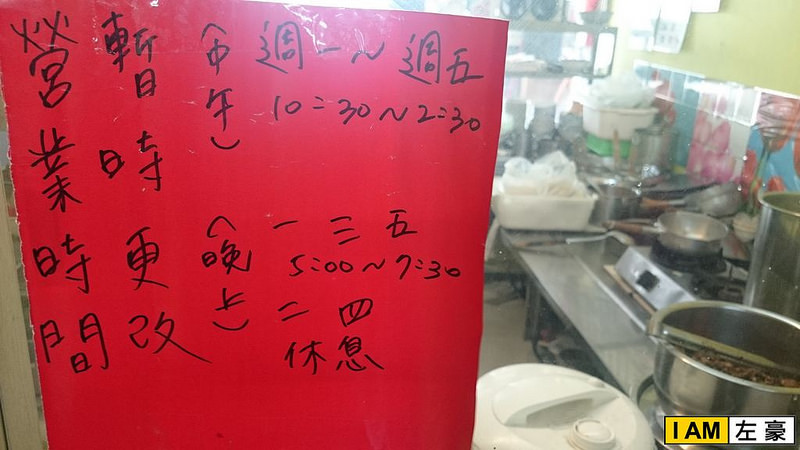 營業時間
暫時更改
(中午)
週一~週五
10:30~2:30
(晚上)
一三五
5:00~7:30
二四
休息
I AM 左豪